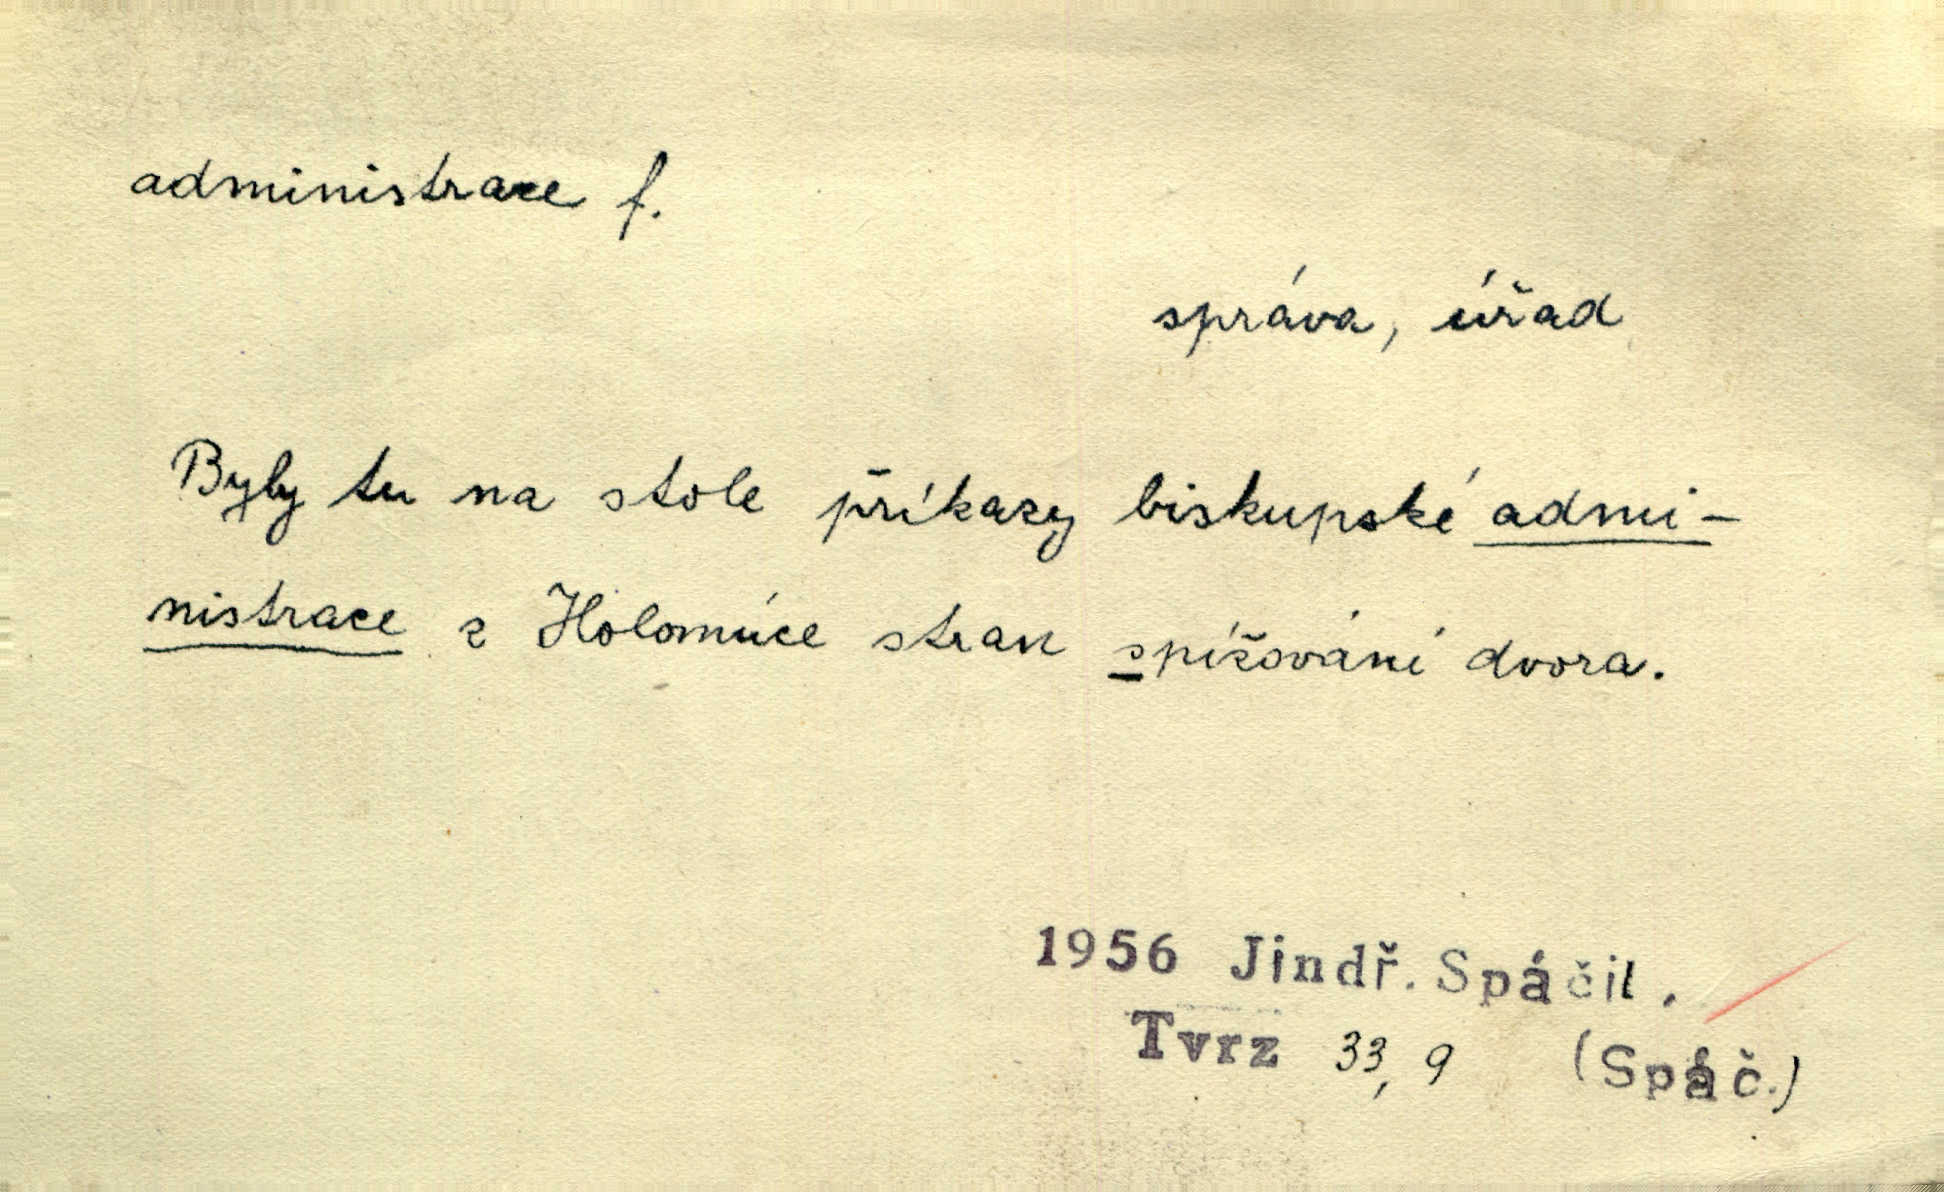 administrace f.
správa, úřad
Byly tu na stole příkazy biskupské admi-
nistrace z Holomúce stran spížování dvora.
1956 Jindř. Spáčil.
Tvrz 33, 9 (Spáč.)